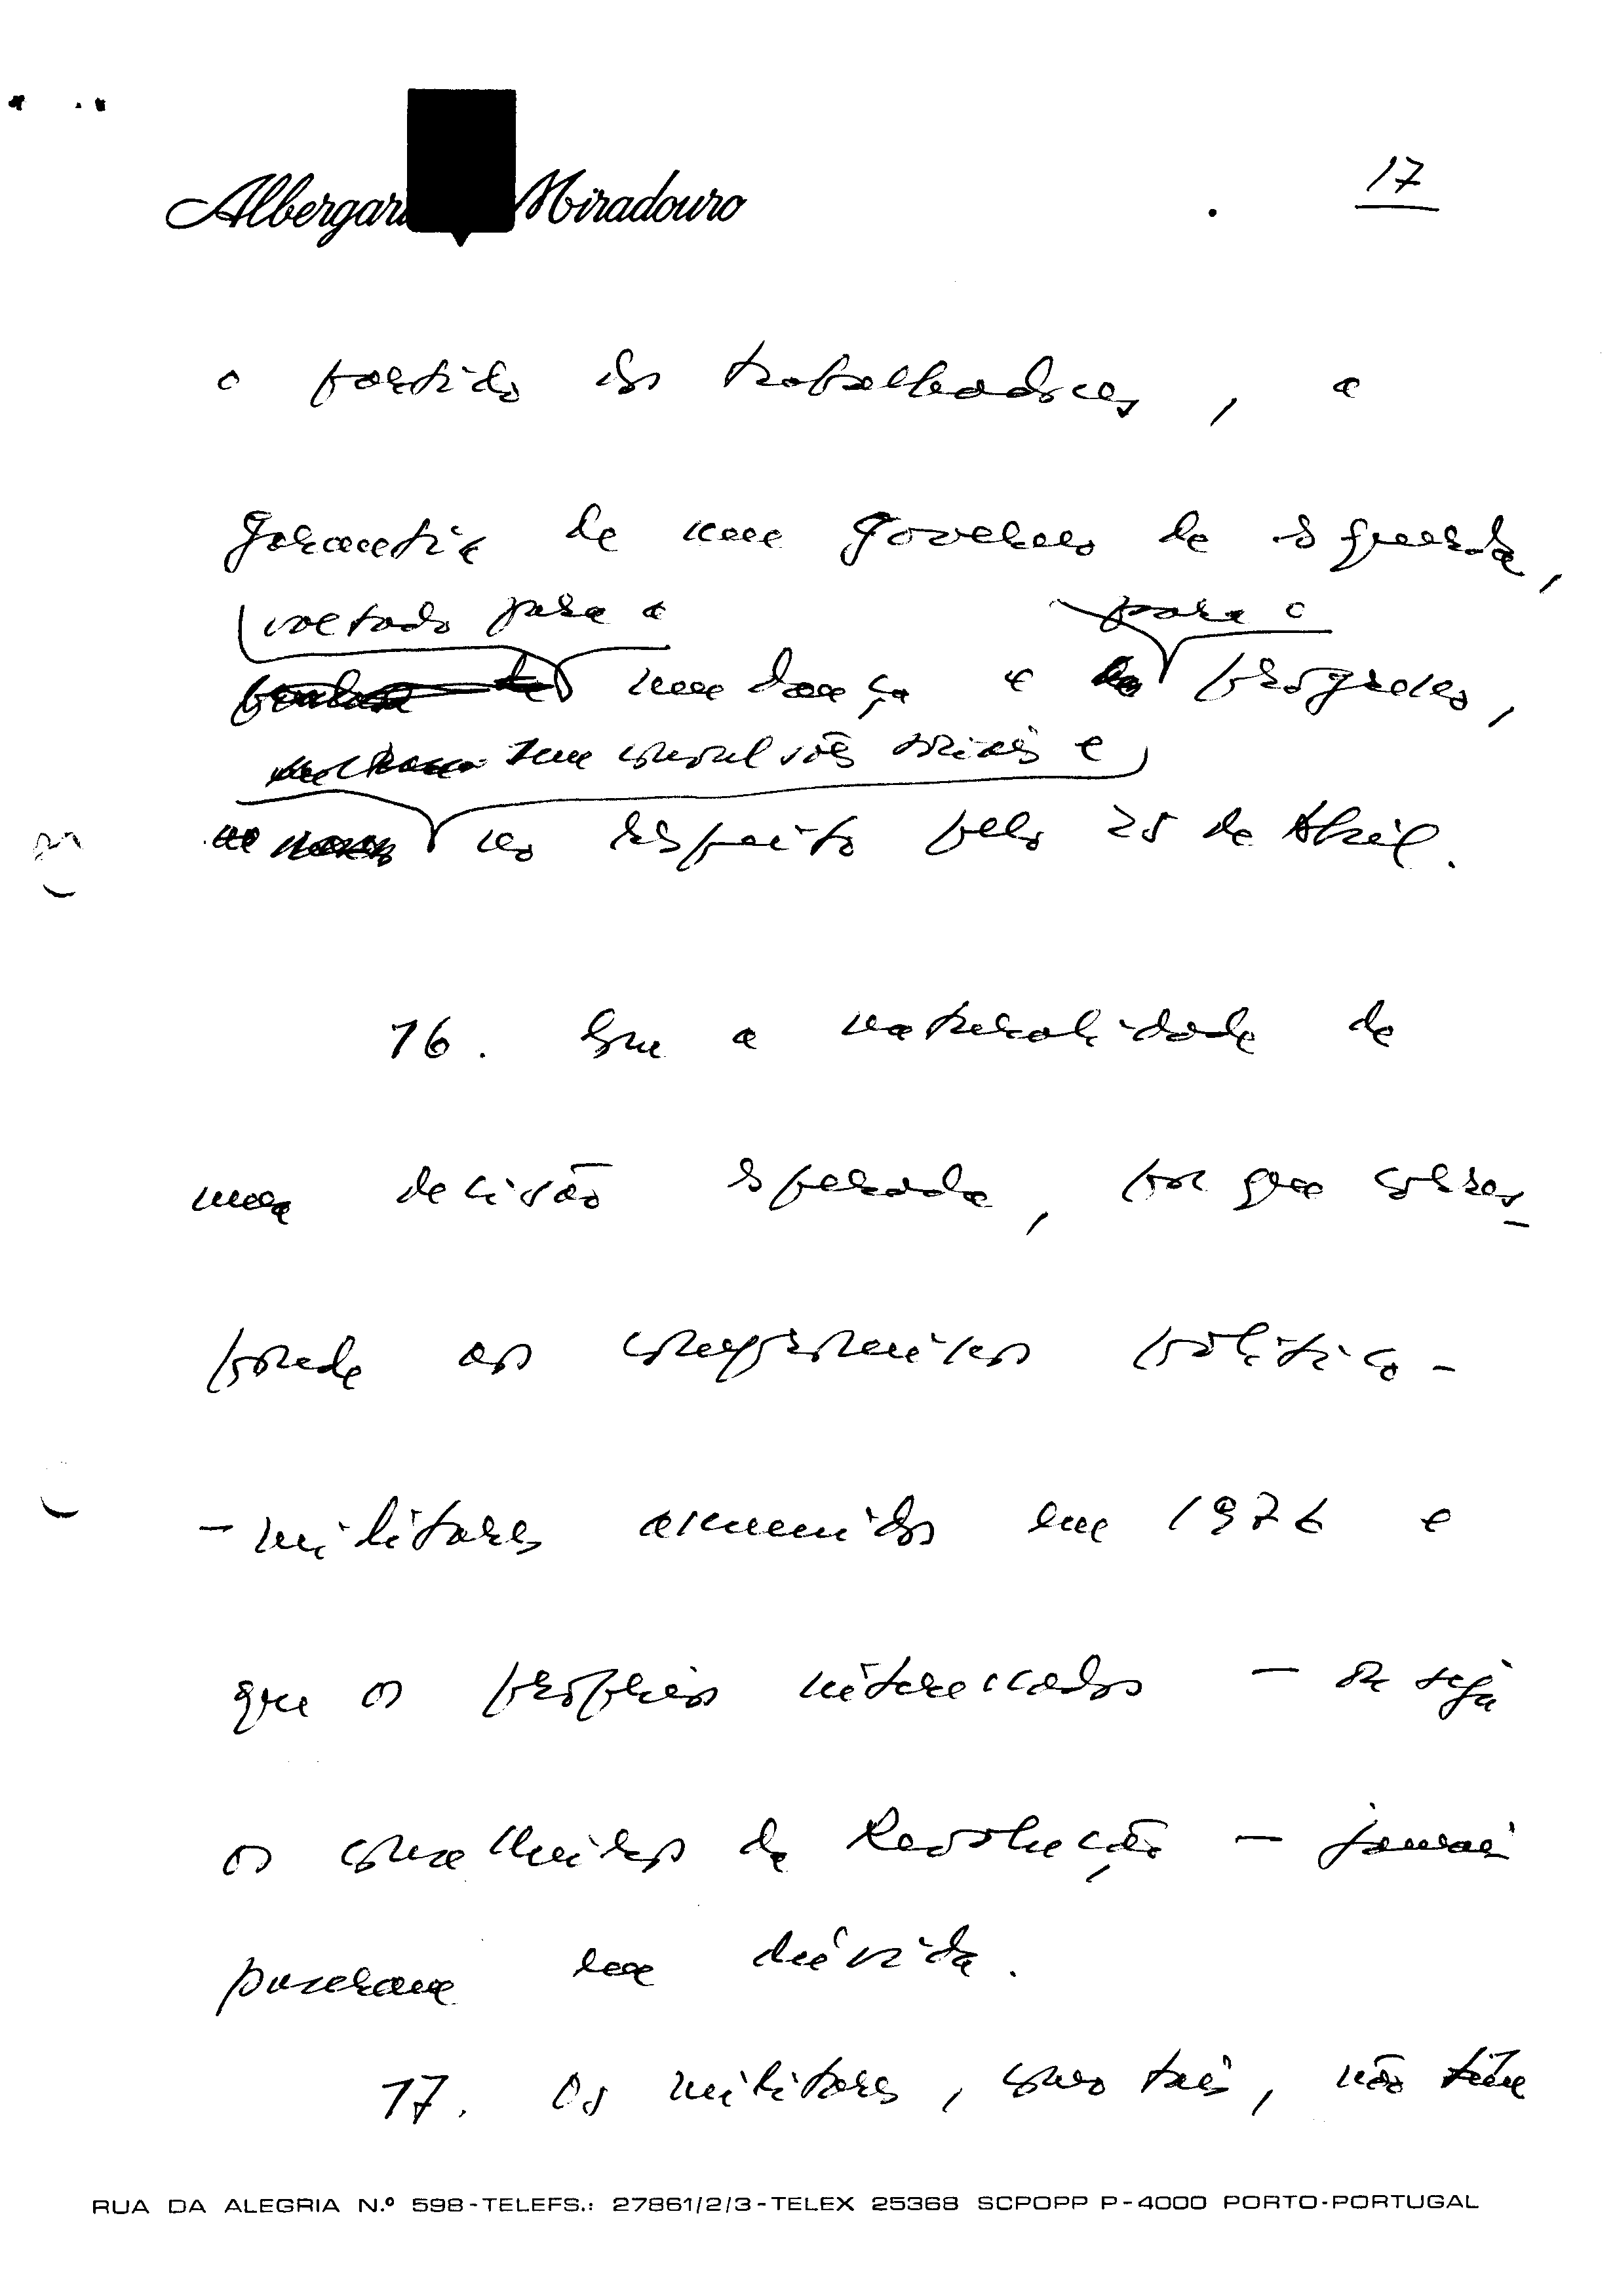 Albergari Miradouro
17
o partido dos trabalhadores, a
garantia de um governo de esquerda,
voltado para a para o
mudança e progresso,
sem convulsões sociais e
no respeito pelo 25 de Abril.
16. Com a naturalidade de
uma decisão esperada, porque corres-
ponde aos compromissos político-
-militares assumidos em 1976 e
que os próprios interessados — ou seja
os conselheiros da Revolução — jamais
puseram em dúvida.
17. Os militares, como tais, não têm
RUA DA ALEGRIA N.º 598-TELEFS.: 27861/2/3-TELEX 25368 SCPOPP P-4000 PORTO-PORTUGAL